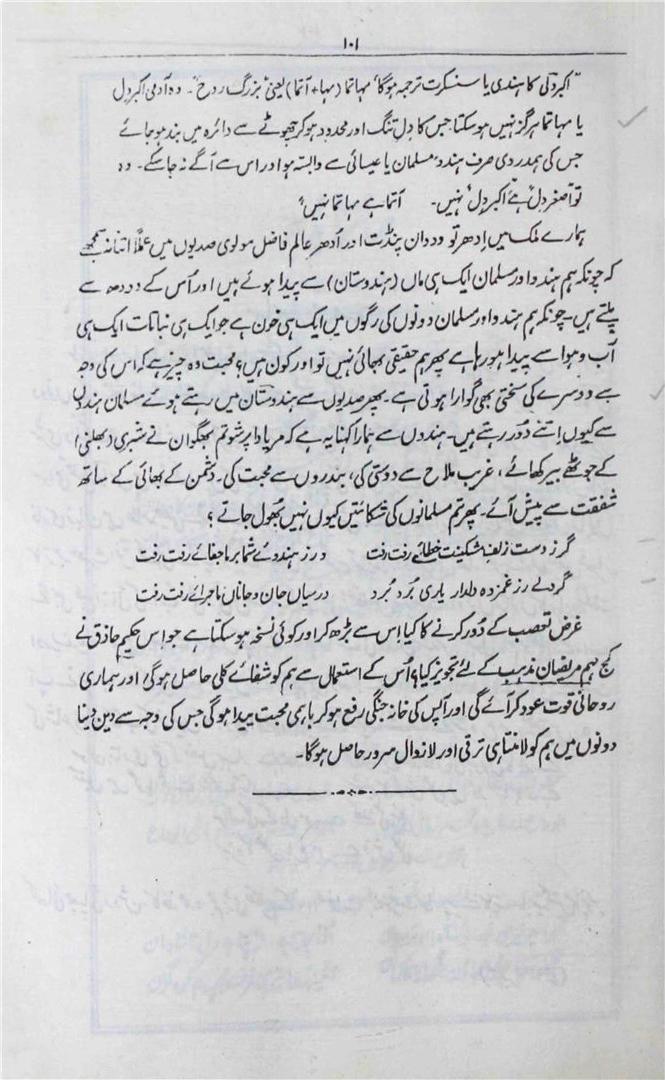 ۱۰۱
"اکبر دلی کا ہندی یا سنسکرت ترجمہ ہوگا 'مہاتما (مہا+آتما) یعنی بزرگ روح'۔ وہ آدمی اکبر دل
یا مہاتما ہرگز نہیں ہو سکتا جس کا دل تنگ اور محدود ہو کر چھوٹے سے دائرہ میں بند ہو جائے
جس کی ہمدردی صرف ہندو، مسلمان یا عیسائی سے وابستہ ہو اور اس سے آگے نہ جا سکے۔ وہ
تو 'اصغر دل' ہے 'اکبر دل' نہیں۔ آتما ہے مہاتما نہیں"
ہمارے ملک میں اِدھر تو ودوان پنڈت اور اُدھر عالم فاضل مولوی صدیوں میں عملاً اتنا نہ سمجھے
کہ چونکہ ہم ہندو اور مسلمان ایک ہی ماں (ہندوستان) سے پیدا ہوئے ہیں اور اُس کے دودھ سے
پلتے ہیں۔ چونکہ ہم ہندو اور مسلمان دونوں کی رگوں میں ایک ہی خون ہے جو ایک ہی نباتات ایک ہی
آب و ہوا سے پیدا ہو رہا ہے پھر ہم حقیقی بھائی نہیں تو اور کون ہیں؟ محبت وہ چیز ہے کہ اس کی وجہ
سے دوسرے کی سختی بھی گوارا ہوتی ہے۔ پھر صدیوں سے ہندستان میں رہتے ہوئے مسلمان ہندوں
سے کیوں اتنے دُور رہتے ہیں۔ ہندوں سے ہمارا کہنا یہ ہے کہ مریادا پرشوتم بھگوان نے شبری (بھلنی)
کے جوٹھے بیر کھائے، غریب ملاح سے دوستی کی، بندروں سے محبت کی۔ دشمن کے بھائی کے ساتھ
شفقت سے پیش آئے۔ پھر تم مسلمانوں کی شکائتیں کیوں نہیں بھول جاتے؟
گرز دست زلف مشکینت خطائے رفت رفت ورز ہندوئے شما بر ما جفائے رفت رفت
گر دلے از غمزہ دلدار یاری بُرد بُرد درمیاں جان و جاناں ماجرائے رفت رفت
غرض تعصب کے دُور کرنے کا کیا اِس سے بڑھ کر اور کوئی نسخہ ہو سکتا ہے جو اس حکیم حاذق نے
کہ ہم مریضانِ مذہب کے لئے تجویز کیا؟ اُس کے استعمال سے ہم کو شفائے کلی حاصل ہوگی اور ہماری
روحانی قوت عود کر آئے گی اور آپس کی خانہ جنگی رفع ہو کر باہمی محبت پیدا ہوگی جس کی وجہ سے دین دنیا
دونوں میں ہم کو لامتناہی ترقی اور لازوال سرور حاصل ہوگا۔